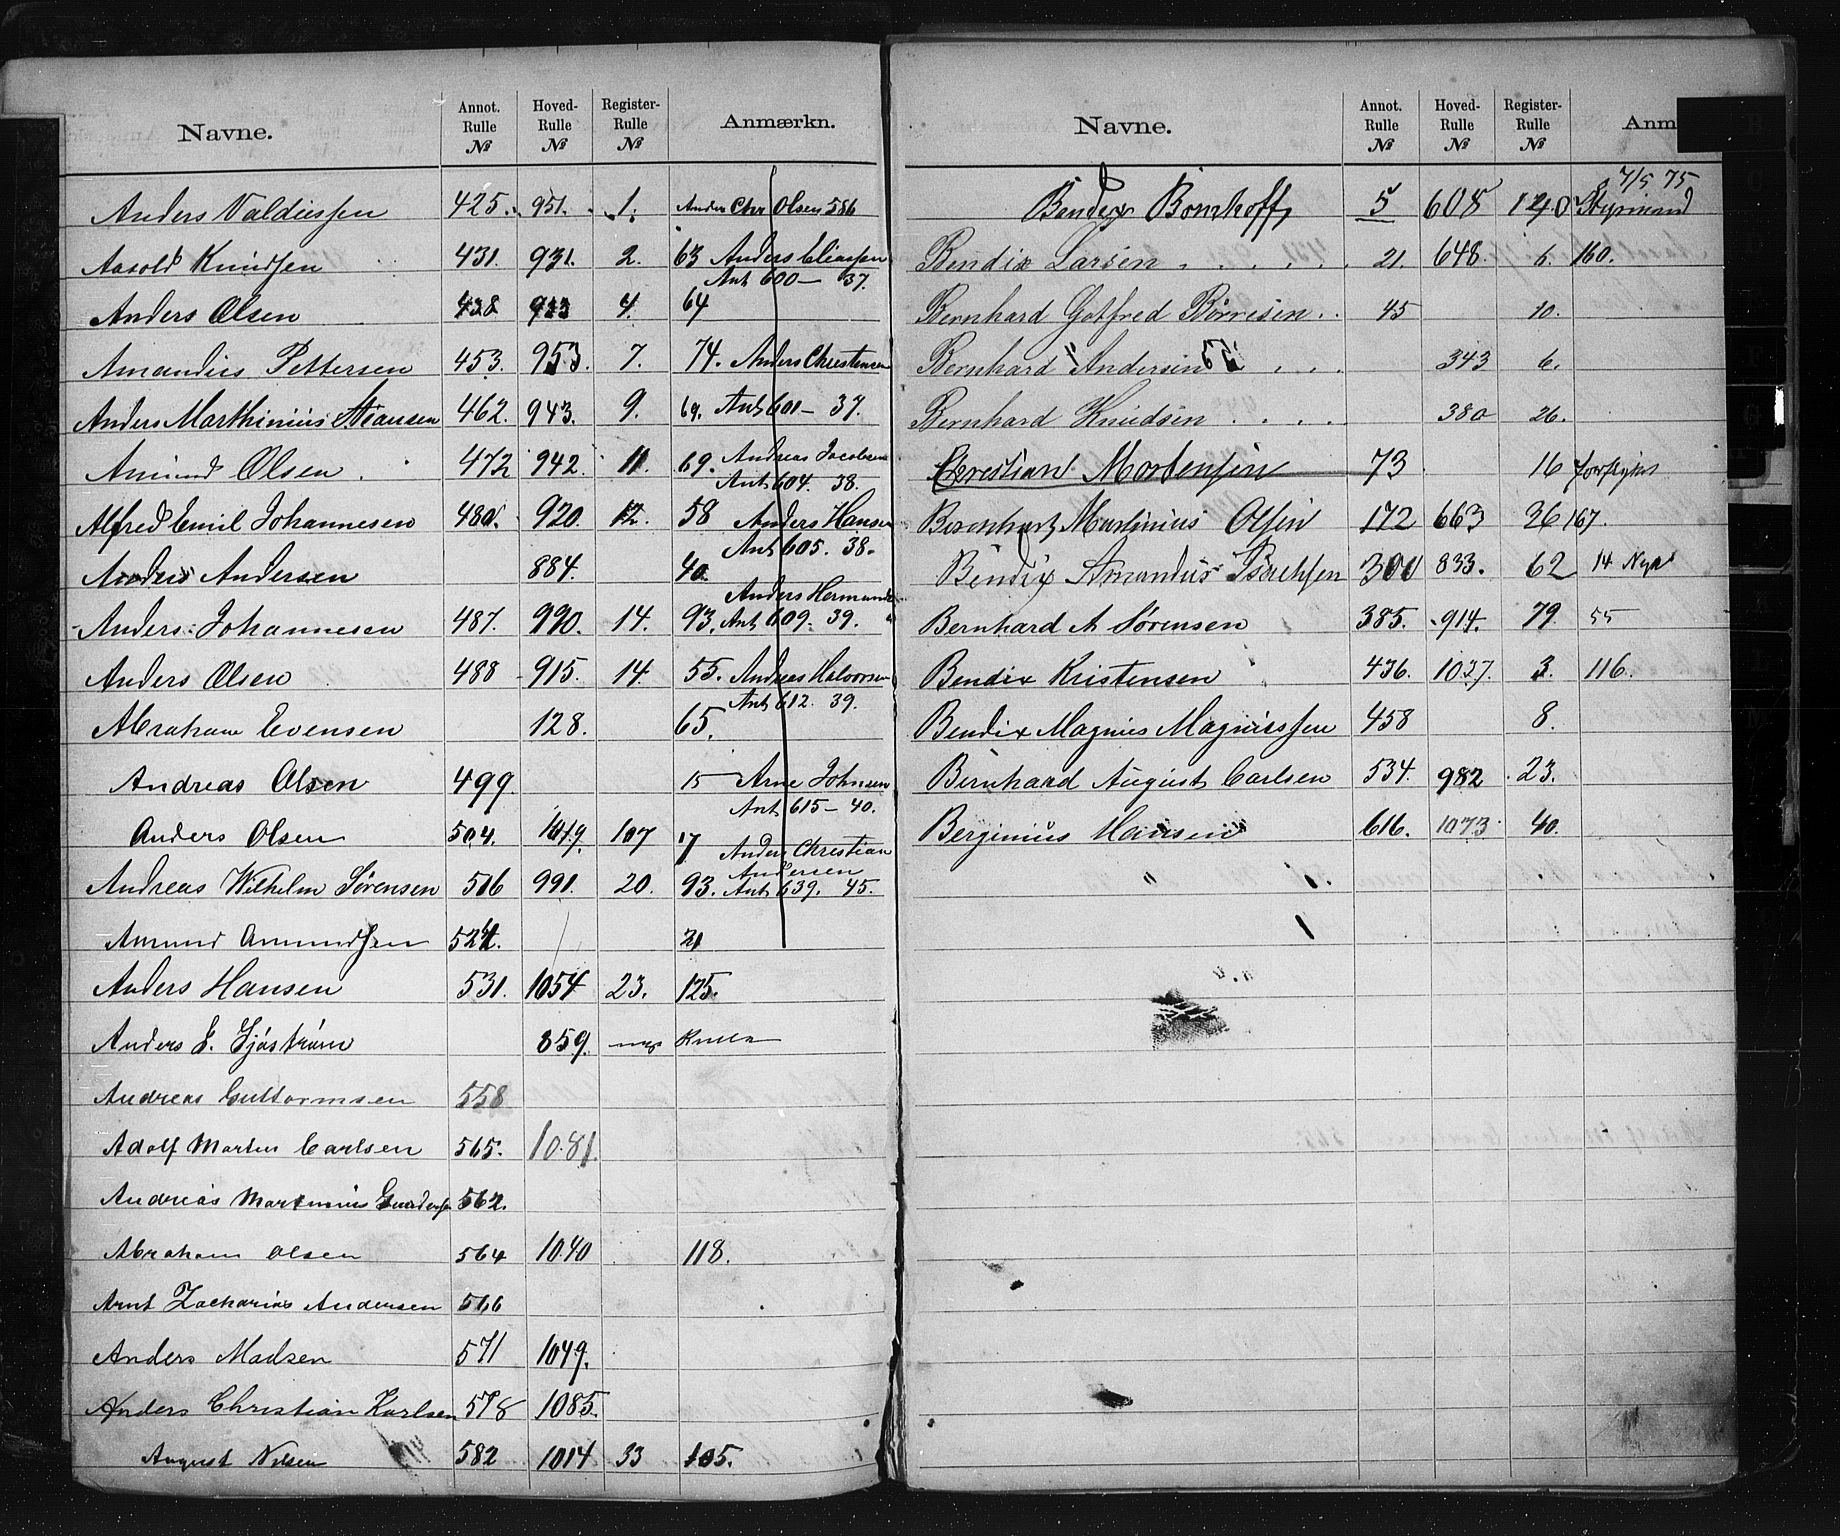 Navne. Annot. Rulle № Hoved- Rulle № Register- Rulle № Anmærkn.
Anders Valdiussen 425. 951. 1. Anders Chr Olsen 586
Aasold Knudsen 431. 931. 2. 63 Anders Eliassen
Ant 600 — 37.
Anders Olsen 438 933 4. 64
Amandus Pettersen 453. 953. 7. 74. Anders Christensen
Anders Marthinius Hansen 462. 943. 9. 69. Ant 601 — 37.
Amund Olsen 472 942. 11. 69. Andreas Jacobsen
Ant 604. 38.
Alfred Emil Johannesen 480. 920. 12. 58 Anders Hansen
Ant 605. 38.
Anders Andersen 884. 40.
Anders Hermands
Anders Johannesen 487. 990. 14. 93. Ant 609. 39.
Anders Olsen 488 915. 14. 55. Andreas Halvorsen
Ant 612. 39.
Abraham Evensen 128. 65.
Andreas Olsen 499 15 Arne Johnsen
Ant 615 — 40.
Anders Olsen 504. 1019. 107 17 Anders Christian
Andersen
Andreas Wilhelm Sørensen 516 991. 20. 93. Ant 639. 45.
Amund Amundsen 521. 21
Anders Hansen 531. 1054 23. 125.
Anders E. Sjøstrøm 859.
Andreas Guttormsen 558
Adolf Morten Carlsen 565. 1081.
Andreas Martinius Gundersen 562.
Abraham Olsen 564 1040 118.
Arnt Zacharias Andersen 566
Anders Madsen 571 1049.
Anders Christian Karlsen 578 1085.
August Nilsen 582 1014 33 105.
Navne. Annot. Rulle № Hoved- Rulle № Register- Rulle № Anm
7/5 75
Bendix Bomhoff 5 608 120 Styrmand
Bendix Larsen 21. 648. 5. 160.
Bernhard Gotfred Børresen 45 10.
Bernhard Andersen 343 6.
Bernhard Knudsen 380 26.
Christian Mortensen 73 16
Bernhart Martinius Olsen 172 663 36 167.
Bendix Amandus 300 833. 62 14
Bernhard A Sørensen 385. 914. 79. 55
Bendix Kristensen 436. 1037. 3. 116.
Bendix Magnus Magnussen 458 8.
Bernhard August Carlsen 534. 982 23.
Berginius Hansen 616. 1073 40.